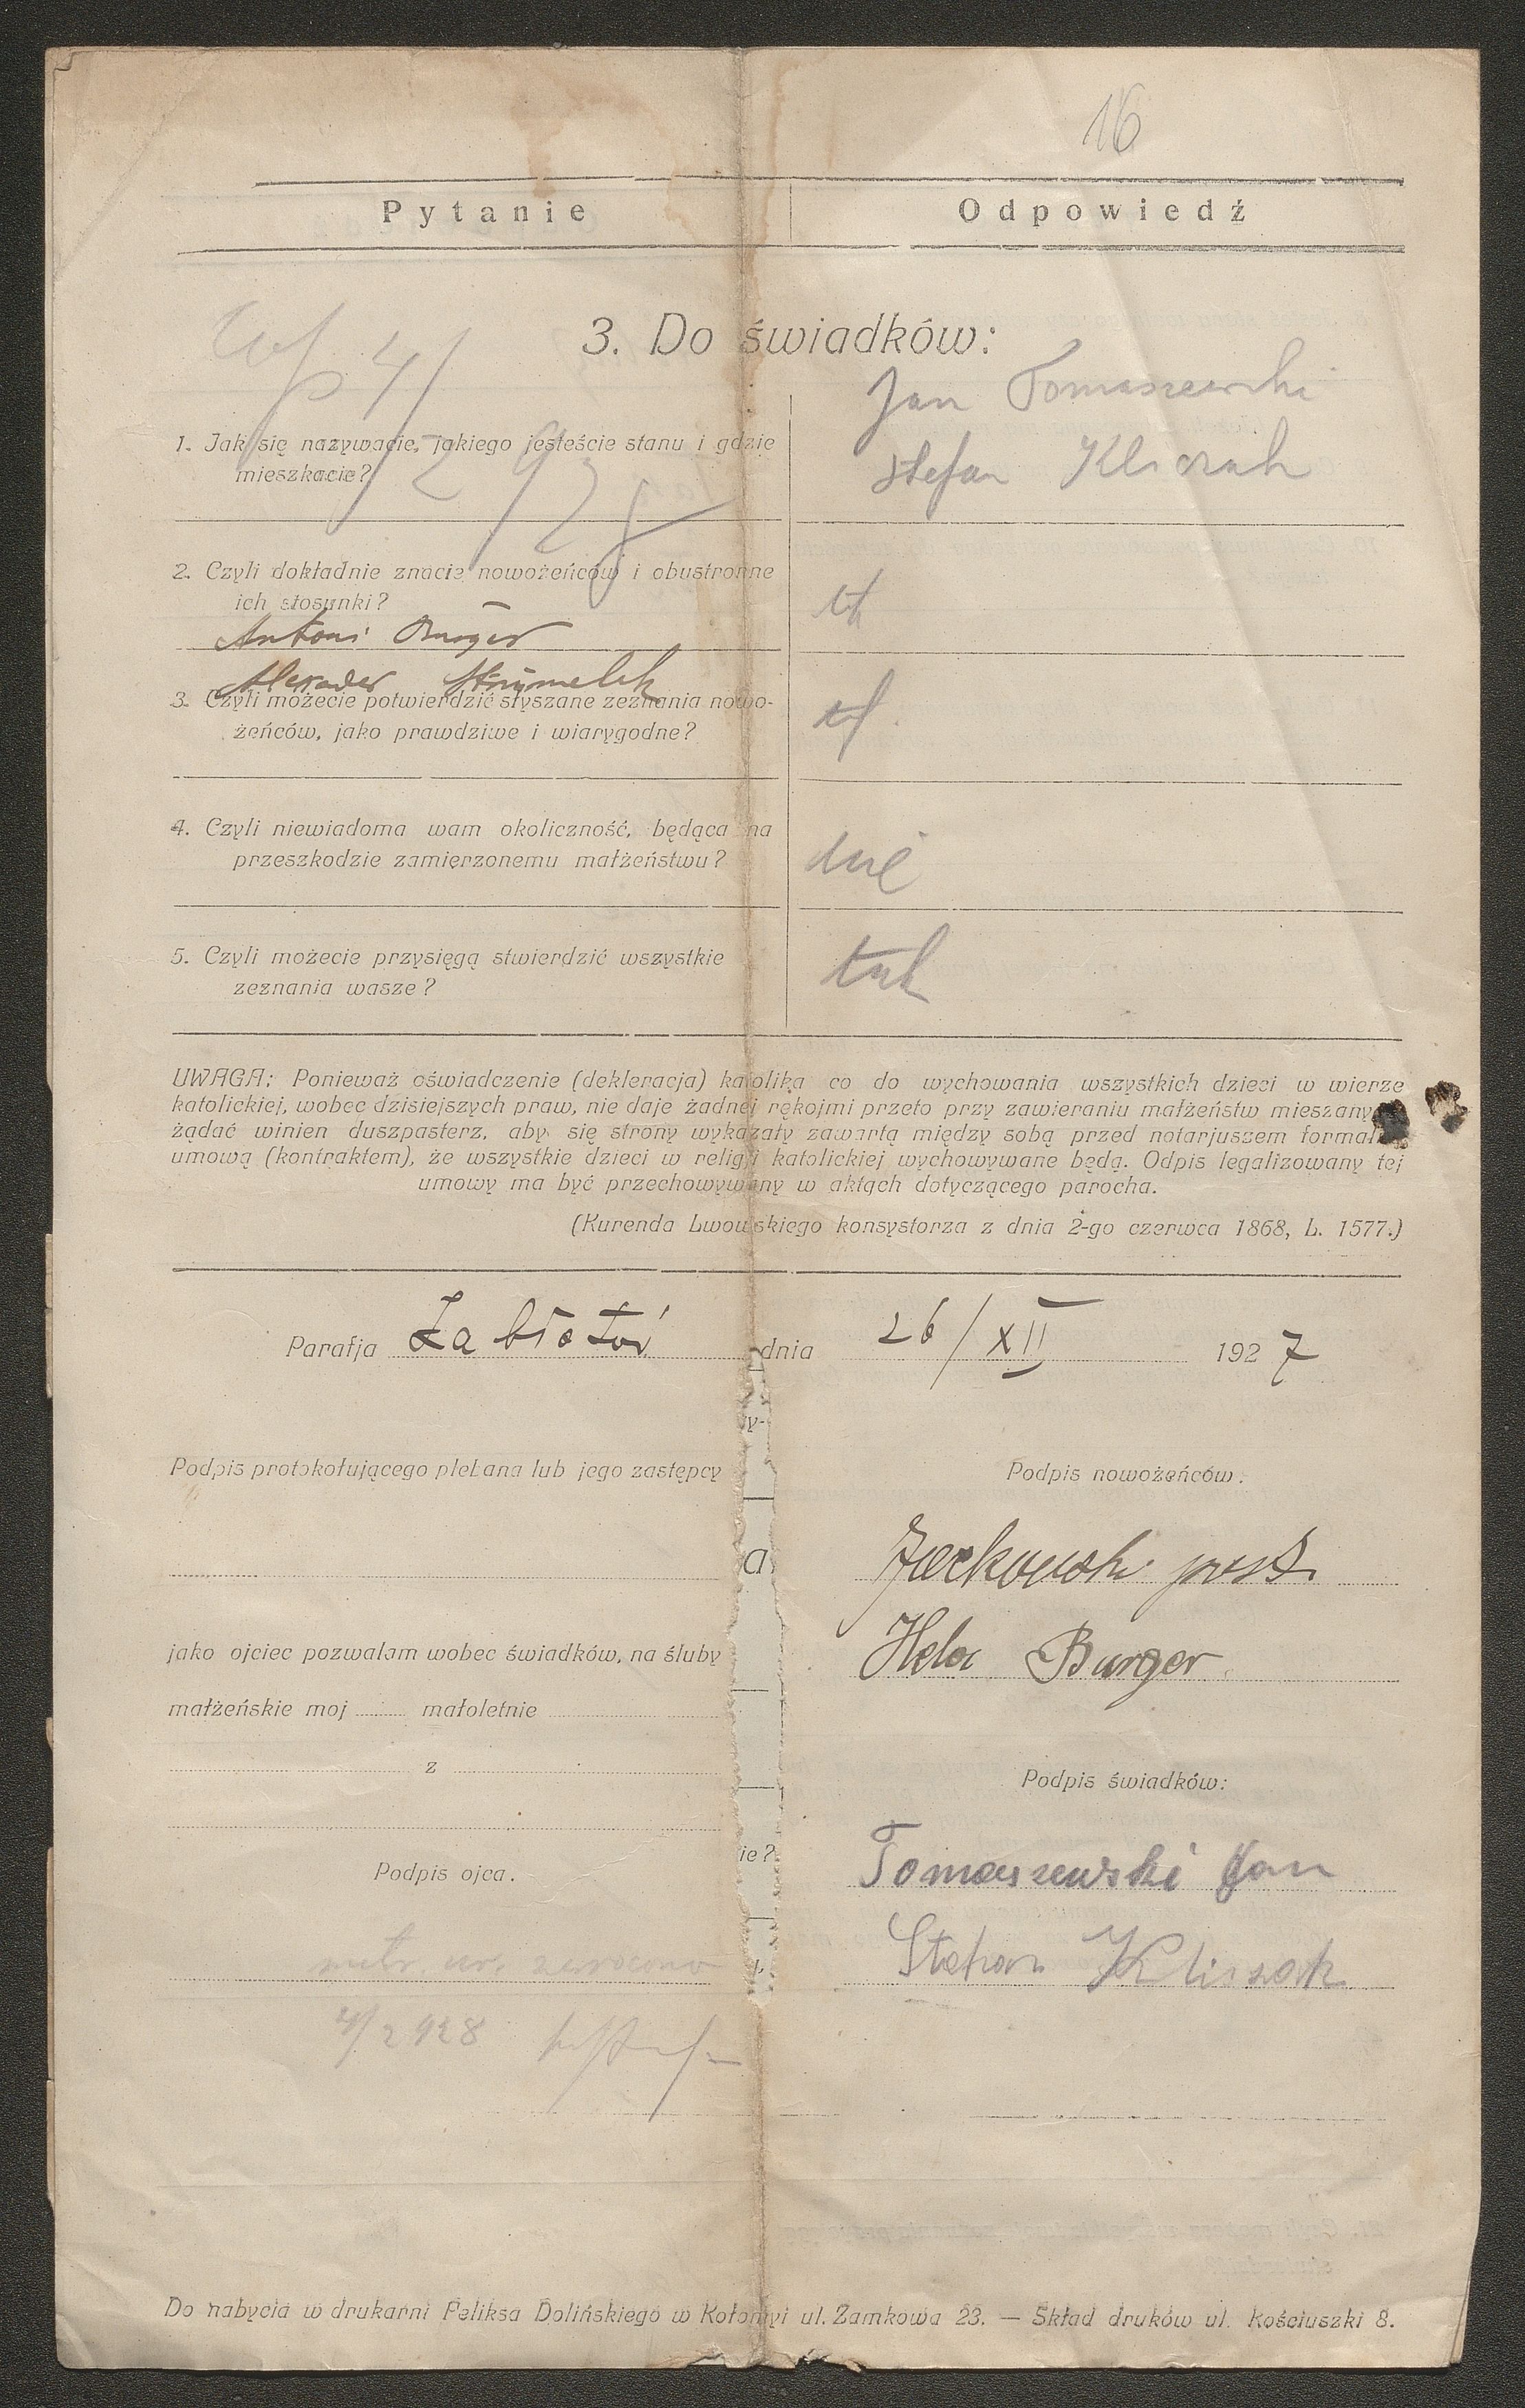 16
Pytanie
Odpowiedź
3. Do świadków:
Jan Tomaszewski
1. Jak się nazywacie, jakiego jesteście stanu i gdzie
mieszkacie?
Stefan Kliszak
2. Czyli dokładnie znacie nowożeńców i obustronne
ich stosunki?
Antoni Burger
3. Czyli możecie potwierdzić słyszane zeznania nowo-
żeńców, jako prawdziwe i wiarygodne?
4. Czyli niewiadoma wam okoliczność, będąca na
przeszkodzie zamierzonemu małżeństwu?
nie
5. Czyli możecie przysięgą stwierdzić wszystkie
zeznania wasze?
tak
UWAGA: Ponieważ oświadczenie (dekleracja) katolika co do wychowania wszystkich dzieci w wierze
katolickiej, wobec dzisiejszych praw, nie daje żadnej rękojmi przeto przy zawieraniu małżeństw mieszany
żądać winien duszpasterz, aby się strony wykazały zawartą między sobą przed notarjuszem formal
umową (kontraktem), że wszystkie dzieci w religji katolickiej wychowywane będą. Odpis legalizowany tej
umowy ma być przechowywany w aktach dotyczącego parocha.
(Kurenda Lwowskiego konsystorza z dnia 2-go czerwca 1868, L. 1577.)
Parafja Zabłotów dnia 26/XII 1927
y-
Podpis protokołującego plebana lub jego zastępcy
Podpis nowożeńców.
a
jako ojciec pozwalam wobec świadków, na śluby
Hela Burger
małżeńskie moj małoletnie
z
Podpis świadków:
ie?
Podpis ojca.
Tomaszewski Jan
Stefan Kliszak
4/2 928
Do nabycia w drukarni Feliksa Dolińskiego w Kołomyi ul. Zamkowa 23. — Skład druków ul. Kościuszki 8.